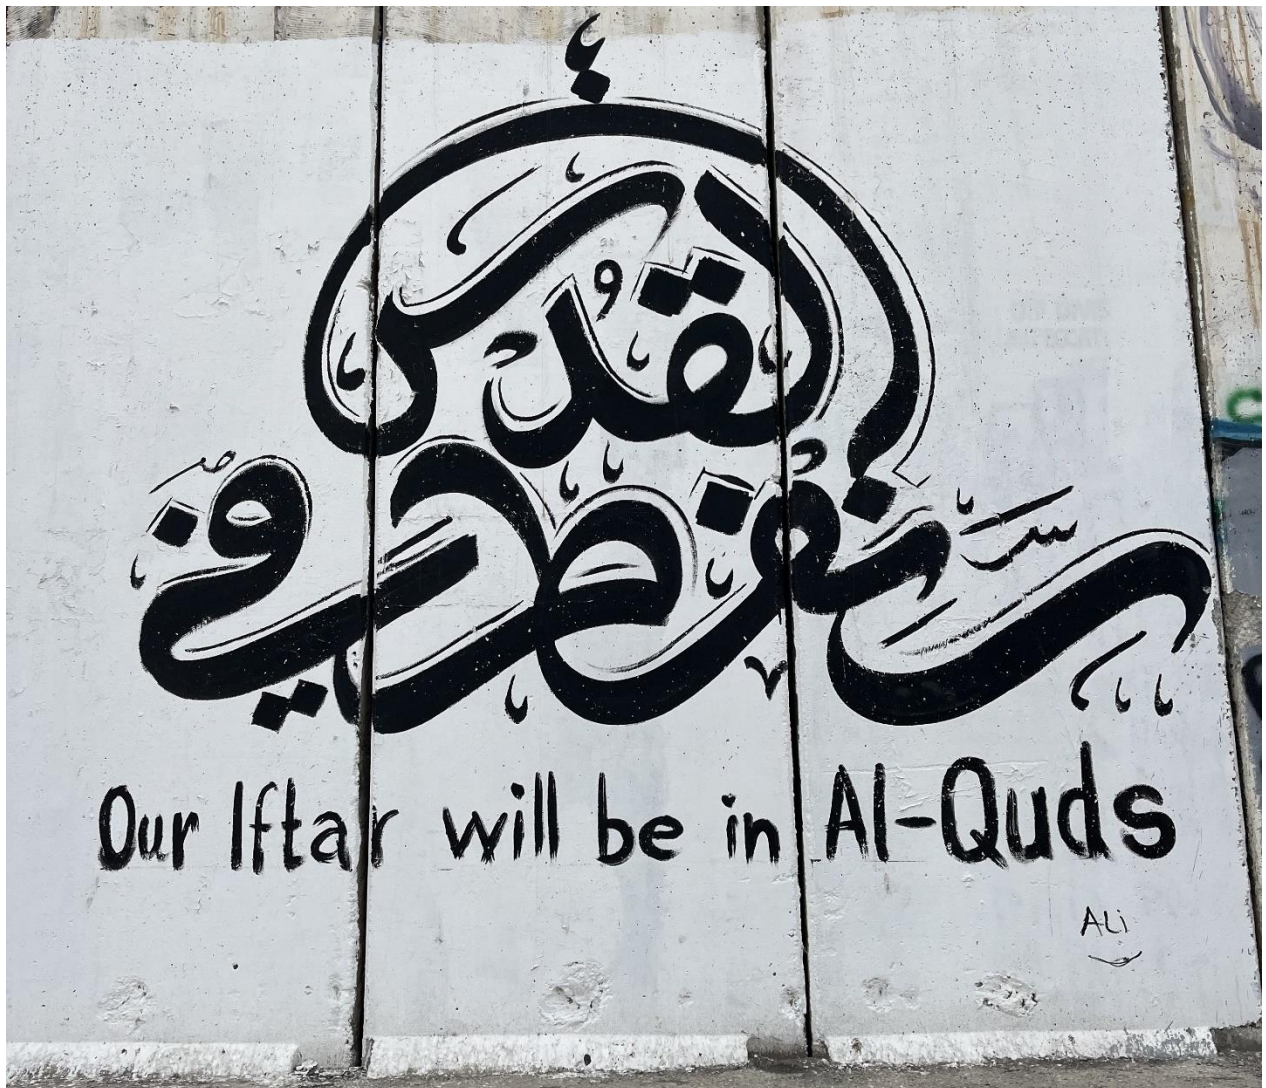 سنفطر في
القدس
Our Iftar will be in Al-Quds
ALi